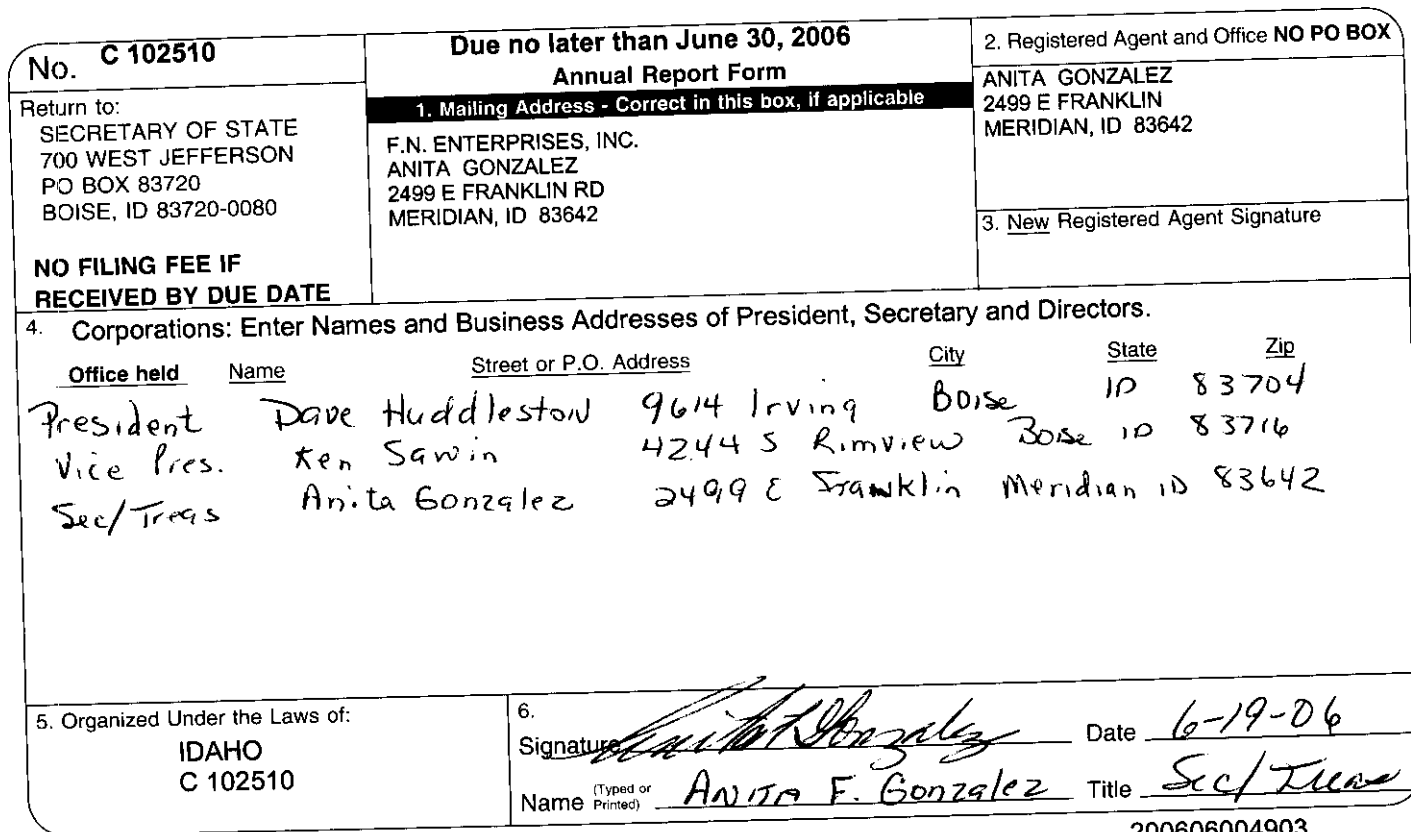 No. C 102510
Return to:
SECRETARY OF STATE
700 WEST JEFFERSON
PO BOX 83720
BOISE, ID 83720-0080
NO FILING FEE IF
RECEIVED BY DUE DATE
Due no later than June 30, 2006
Annual Report Form
1. Mailing Address - Correct in this box, if applicable
F.N. ENTERPRISES, INC.
ANITA GONZALEZ
2499 E FRANKLIN RD
MERIDIAN, ID 83642
2. Registered Agent and Office NO PO BOX
ANITA GONZALEZ
2499 E FRANKLIN
MERIDIAN, ID 83642
3. New Registered Agent Signature
4. Corporations: Enter Names and Business Addresses of President, Secretary and Directors.
Office held Name Street or P.O. Address City State Zip
President Dave Huddleston 9614 Irving Boise ID 83704
Vice Pres. Ken Sawin 4244 S Rimview Boise ID 83716
Sec/Treas Anita Gonzalez 2499 E Franklin Meridian ID 83642
5. Organized Under the Laws of:
IDAHO
C 102510
6.
Signature Anita F Gonzalez Date 6-19-06
Name (Typed or Printed) ANITA F. Gonzalez Title Sec/Treas
200606004903